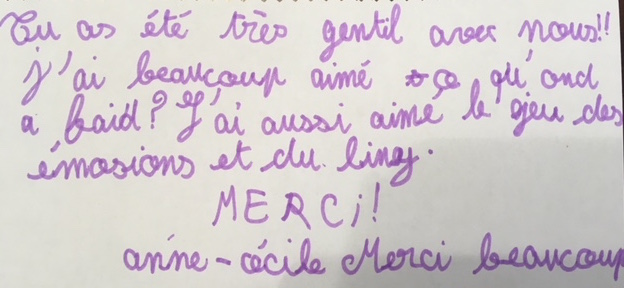 Tu as été très gentil avec nous!!
j'ai beaucoup aimé ce qu'ond
a faid? J'ai aussi aimé le jeu des
émosions et du liney.
MERCi!
anne-cécile Merci beaucoup